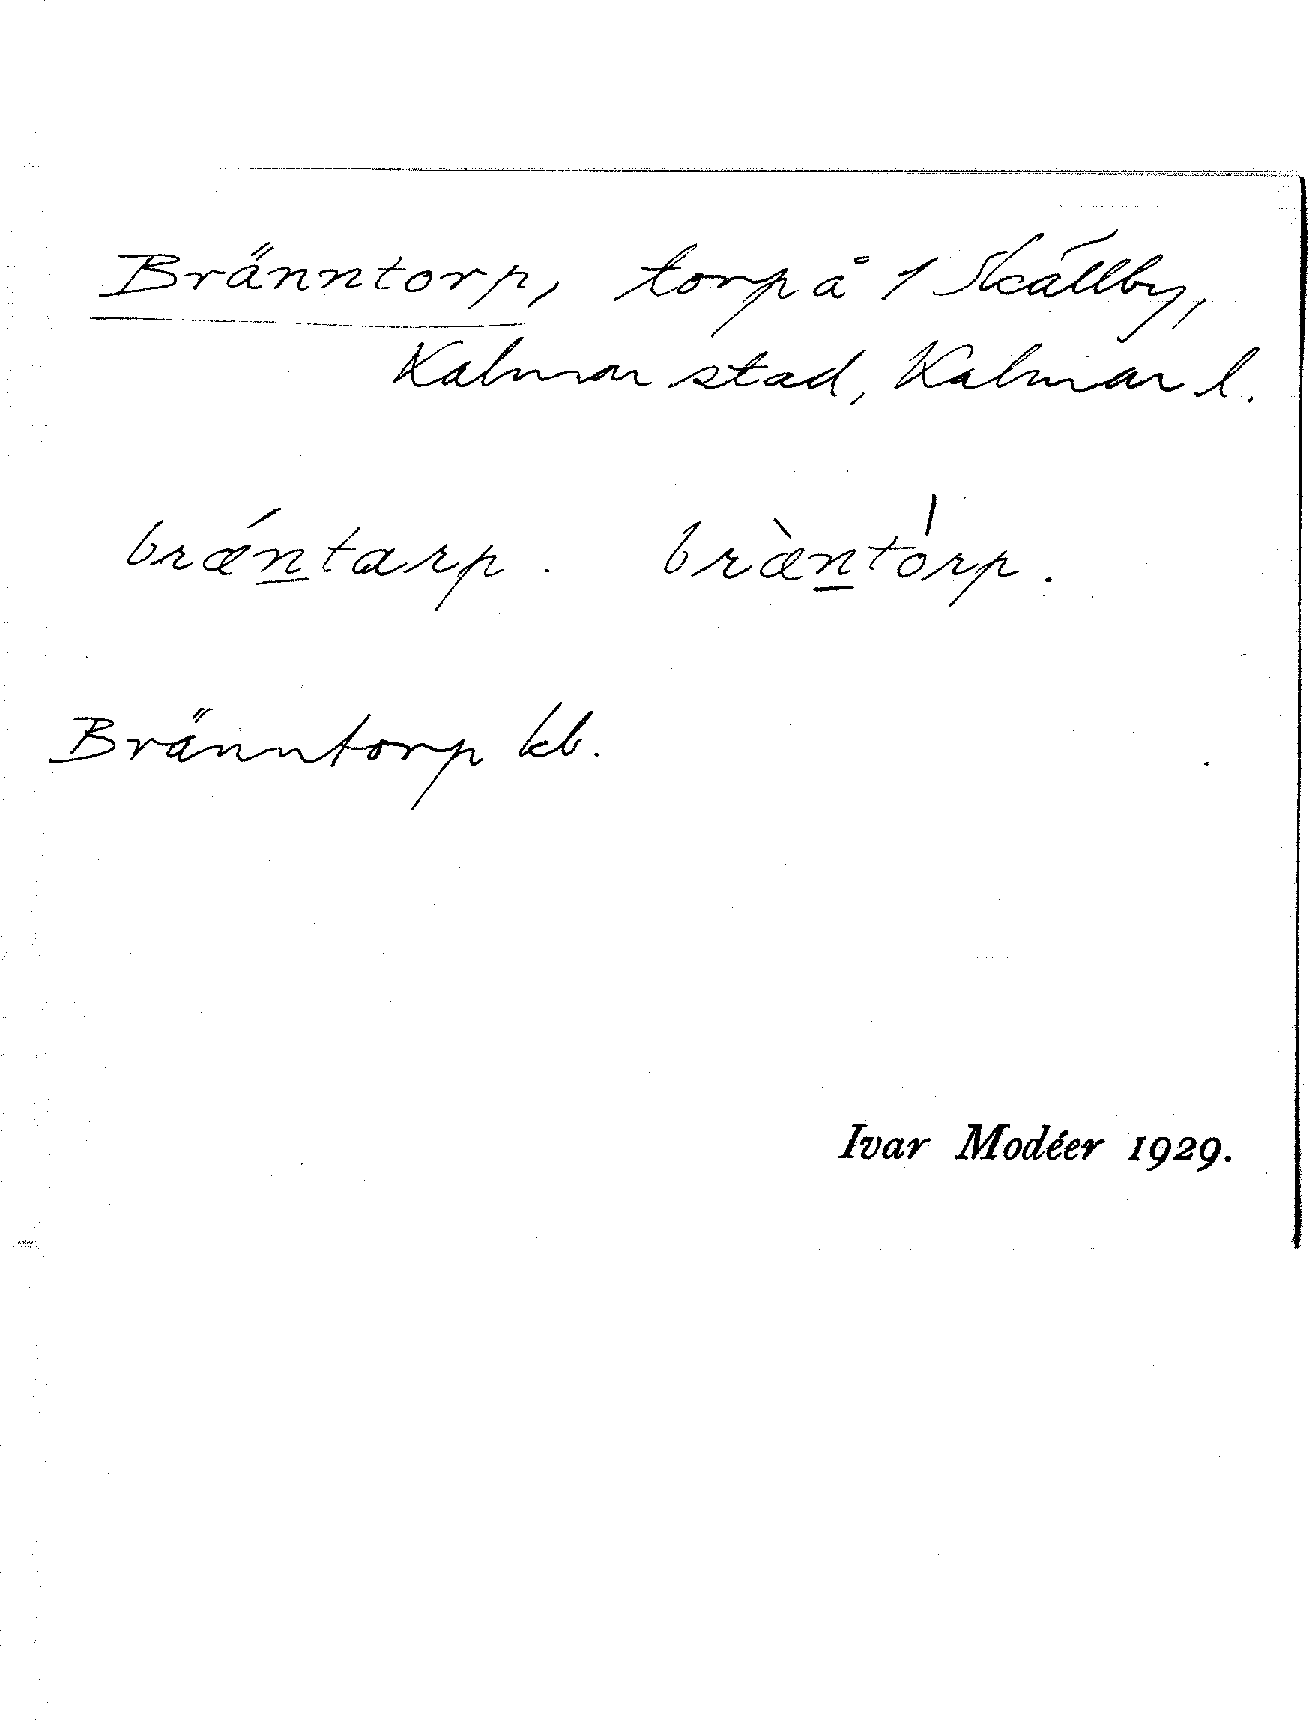 Bränntorp, torp å 1 Skällby,
Kalmar stad, Kalmar l.
brǽntarp. bræ̀ntórp.
Bränntorp kb.
Ivar Modéer 1929.